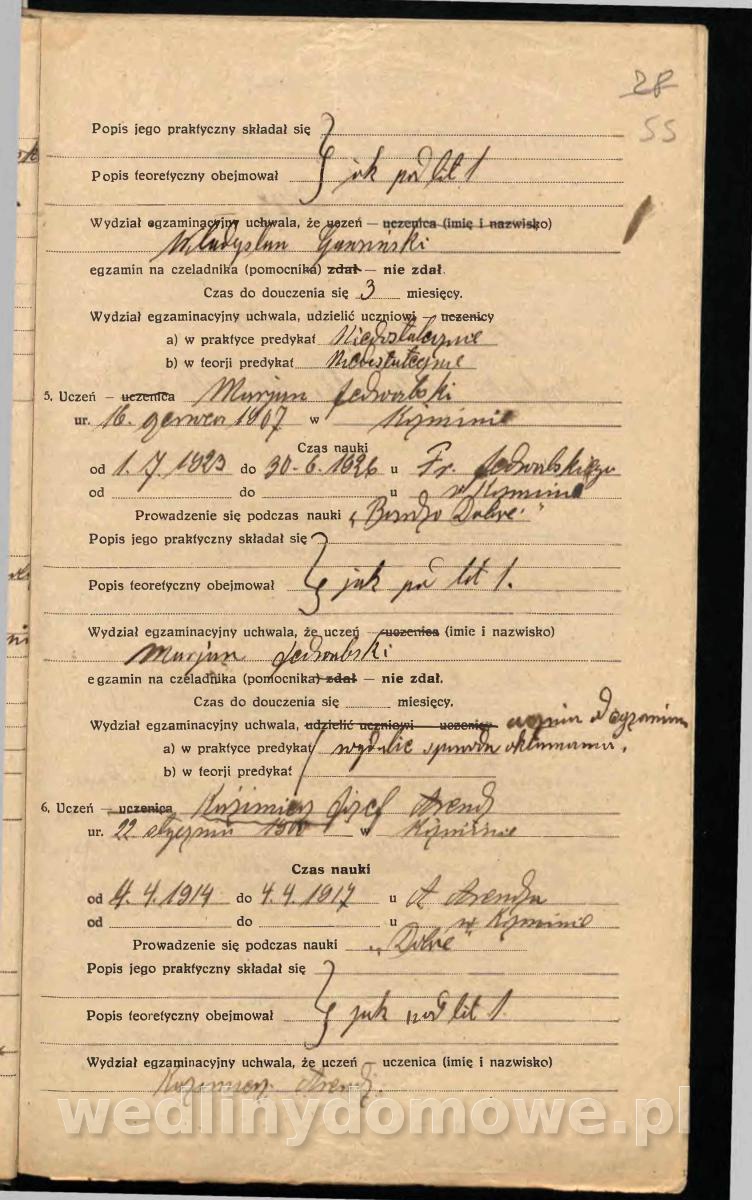 28
55
Popis jego praktyczny składał się
Popis teoretyczny obejmował jak pod lit 1
Wydział egzaminacyjny uchwala, że uczeń — uczenica (imię i nazwisko)
Władysław
egzamin na czeladnika (pomocnika) zdał — nie zdał.
Czas do douczenia się 3 miesięcy.
Wydział egzaminacyjny uchwala, udzielić uczniowi — uczenicy
a) w praktyce predykat Niedostatecznie
b) w teorji predykat Niedostatecznie
5. Uczeń — uczenica Marjan Jedwabski
ur. 16. czerwca 1907 w Koźminie
Czas nauki
od 1. 7. 1923 do 30-6. 1926 u Fr. Jedwabskiego
od do u w Koźminie
Prowadzenie się podczas nauki „Bardzo Dobre"
Popis jego praktyczny składał się
Popis teoretyczny obejmował jak pod lit 1.
Wydział egzaminacyjny uchwala, że uczeń — uczenica (imie i nazwisko)
Marjan Jedwabski
egzamin na czeladnika (pomocnika) zdał — nie zdał.
Czas do douczenia się miesięcy.
Wydział egzaminacyjny uchwala, udzielić uczniowi — uczenicy ucznia od egzaminu
a) w praktyce predykat wydalić
b) w teorji predykat
6. Uczeń — uczenica Kazimierz Józef Arendz
ur. 22 stycznia 1900 w Koźminie
Czas nauki
od 4. 4. 1914 do 4. 4. 1917 u A Arendza
od do u w Koźminie
Prowadzenie się podczas nauki „Dobre"
Popis jego praktyczny składał się
Popis teoretyczny obejmował jak pod lit 1.
Wydział egzaminacyjny uchwala, że uczeń — uczenica (imię i nazwisko)
Kazimierz Arendz.
wedlinydomowe.pl